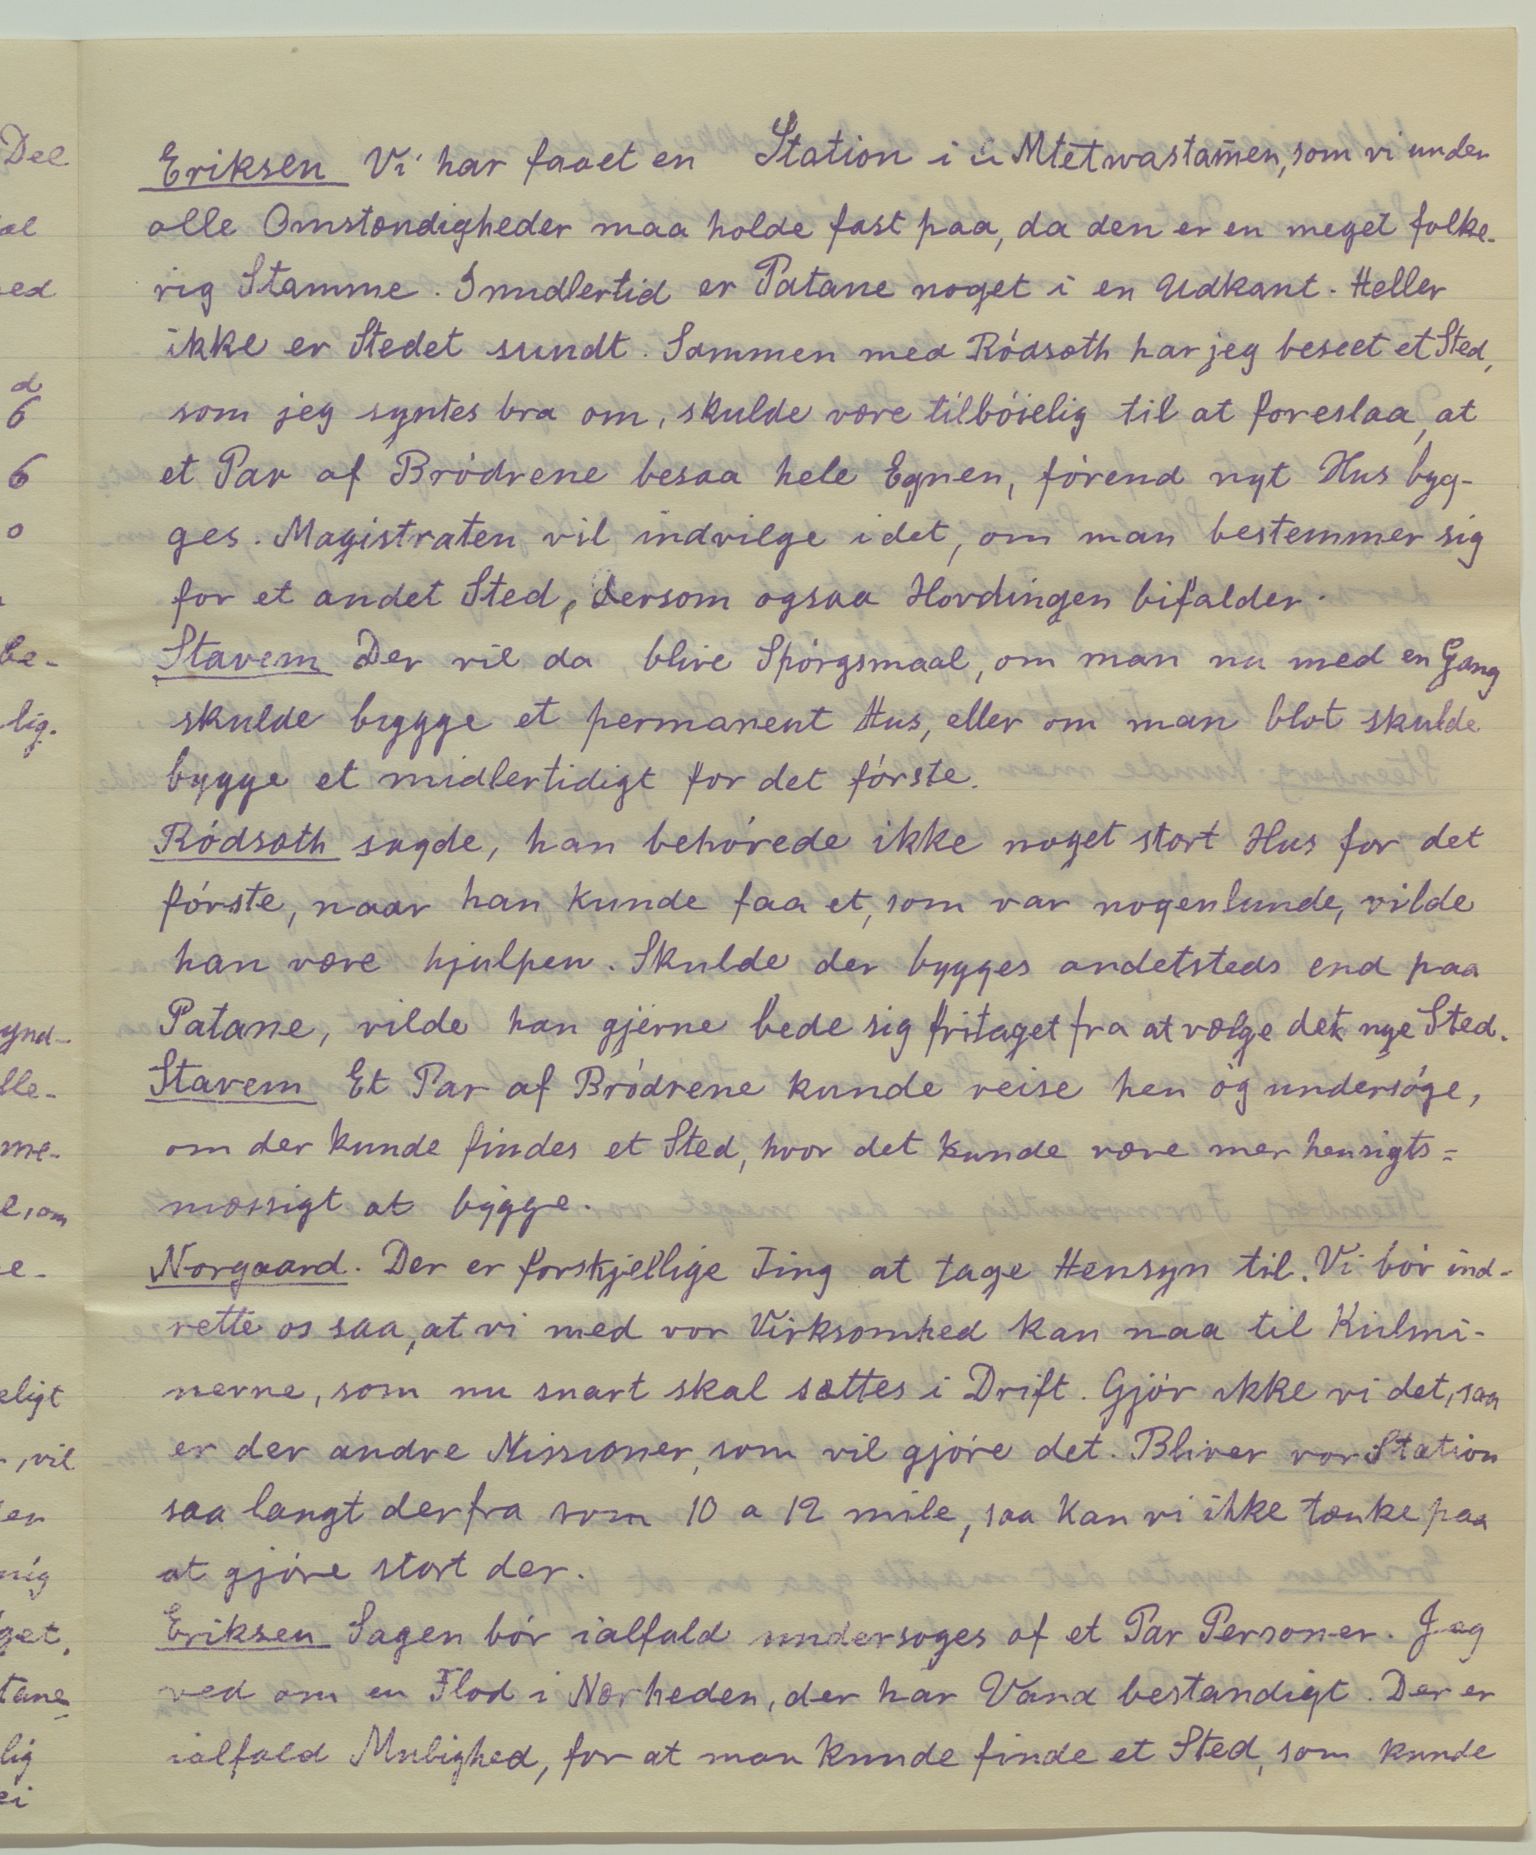 Eriksen Vi har faaet en Station i Mtetwastam̄en, som vi under
alle Omstændigheder maa holde fast paa, da den er en meget folke-
rig Stamme. Imidlertid er Patane noget i en Udkant. Heller
ikke er Stedet sundt. Sammen med Rödsæth har jeg beseet et Sted,
som jeg syntes bra om, skulde være tilböielig til at foreslaa, at
et Par af Brödrene besaa hele Egnen, förend nyt Hus byg-
ges. Magistraten vil indvilge i det, om man bestemmer sig
for et andet Sted, dersom ogsaa Hövdingen bifalder.
Stavem Der vil da blive Spörgsmaal, om man nu med en Gang
skulde bygge et permanent Hus, eller om man blot skulde
bygge et midlertidigt for det förste.
Rödsæth sagde, han behövede ikke noget stort Hus for det
förste, naar han kunde faa et, som var nogenlunde, vilde
han være hjulpen. Skulde der bygges andetsteds end paa
Patane, vilde han gjerne bede sig fritaget fra at vælge det nye Sted.
Stavem Et Par af Brödrene kunde reise hen og undersöge,
om der kunde findes et Sted, hvor det kunde være mer hensigts=
mæssigt at bygge.
Norgaard. Der er forskjellige Ting at tage Hensyn til. Vi bör ind-
rette os saa, at vi med vor Virksomhed kan naa til Kulmi-
nerne, som nu snart skal sættes i Drift. Gjör ikke vi det, saa
er der andre Missioner, som vil gjöre det. Bliver vor Station
saa langt derfra som 10 a 12 mile, saa kan vi ikke tænke paa
at gjöre stort der.
Eriksen Sagen bör ialfald undersöges af et Par Personer. Jeg
ved om en Flod i Nærheden, der har Vand bestandigt. Der er
ialfald Mulighed, for at man kunde finde et Sted, som kunde